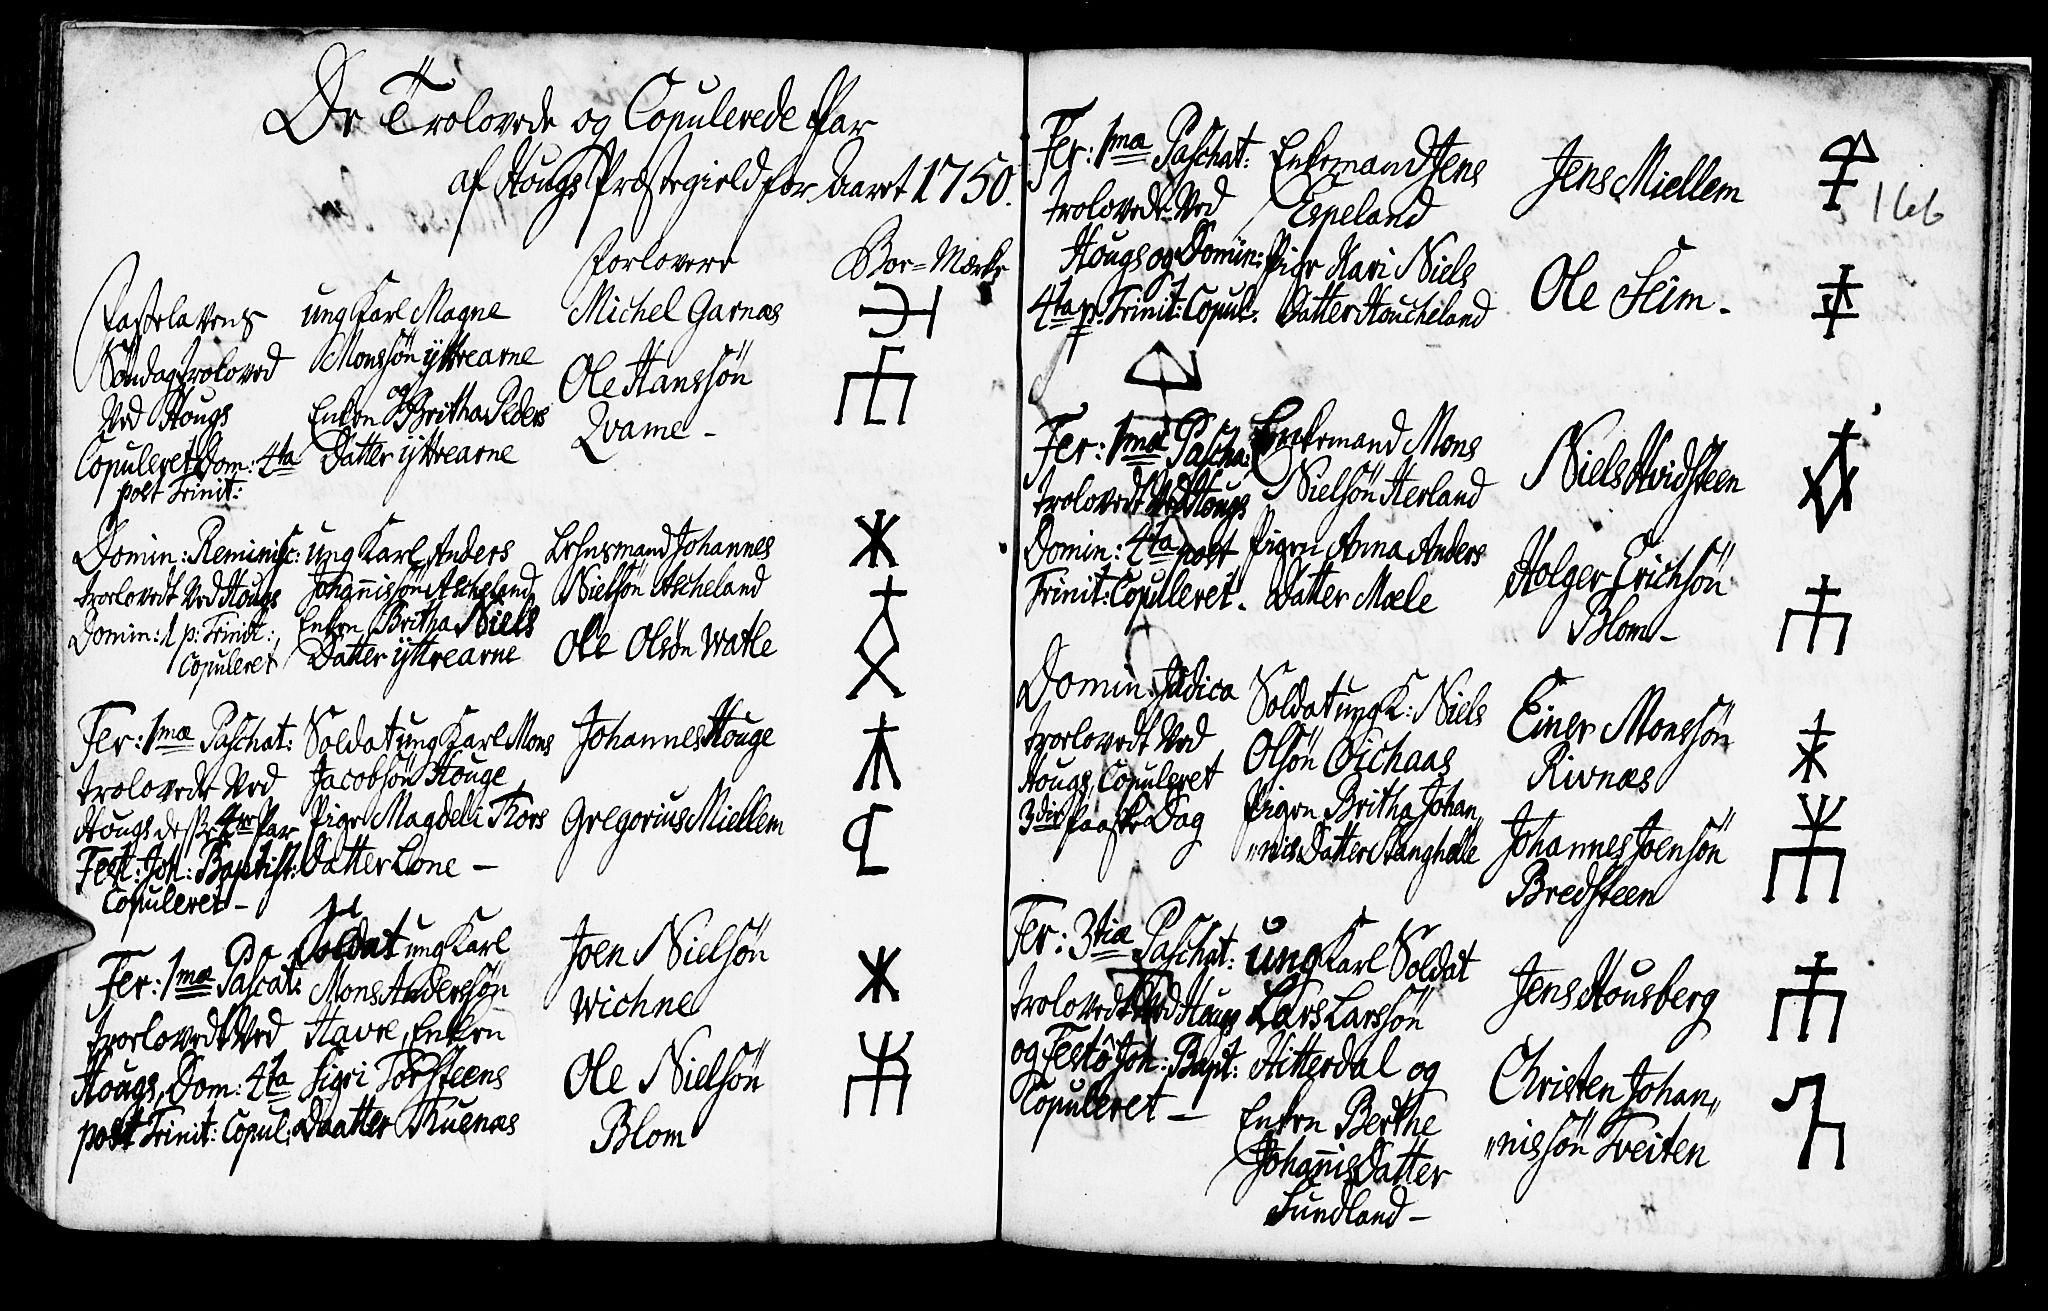 De Trolovede og Copulerede Par
af Hougs Præstegield for Aaret 1750.
Forlovere
Boe=Mærke
Fastelavens
Søndag troloved
Ved Hougs
Copuleret Dom: 4ta
post Trinit:
ung Karl Magne
Monssön ÿttrearne
og
Enken Britha Peders
Datter ÿttrearne
Michel Garnæs
Ole Hanssön
Qvame -
Domin: Reminisc:
trolovedt Ved Hougs
Domin: 1 p: Trinit:
Copuleret
ung Karl Anders
Johañissön Askeland
Enken Britha Niels
Datter ÿttrearne
Lehnsmand Johannes
Nielsön Ascheland
Ole Olsön Watle
Fer: 1mæ Paschat:
trolovede Ved
Hougs desse 4re Par
Fest: Joh: Baptist:
Copuleret -
Soldat ung Karl Mons
Jacobsön Houge
Pige Magdeli Thors
Datter Lone -
Johannes Houge
Gregorius Miellem
Fer: 1mæ Pascat:
trolovedt Ved
Hougs, Dom: 4ta
post Trinit: Copul:
Soldat ung Karl
Mons Anderssön
Havre, Enken
Sigri Torsteens
Daatter Thuenæs
Joen Nielsön
Wichne
Ole Nielsön
Blom
166
Fer: 1mæ Paschat:
trolovede Ved
Hougs og Domin:
4ta p: Trinit: Copul:
Enkemand Jens
Espeland
Pige Kari Niels
Datter Houcheland
Jens Miellem
Ole Seim -
Fer: 1mæ Pascha:
trolovedt Ved Hougs
Domin: 4ta post
Trinit: Copuleret -
Enkemand Mons
Nielsön Herland
Pigen Anna Anders
Datter Mæle
Niels Hvidsteen
Holger Erichsön
Blom -
Domin: Judica
trolovedt Ved
Hougs, Copuleret
3die Paaske Dag
Soldat ung K: Niels
Olsön Eichaas
Pigen Britha Johan„
„nis Datter Stanghelle
Einer Monssön
Rivnæs
Johannes Joensön
Bredsteen
Fer: 3tiæ Paschat:
trolovedt Ved Hougs
og Festô Joh: Bapt:
Copuleret -
ung Karl Soldat
Lars Larssön
Hitterdal og
Enken Berthe
Johañis Datter
Sundland -
Jens Housberg
Christen Johan„
„nissön Tveiten